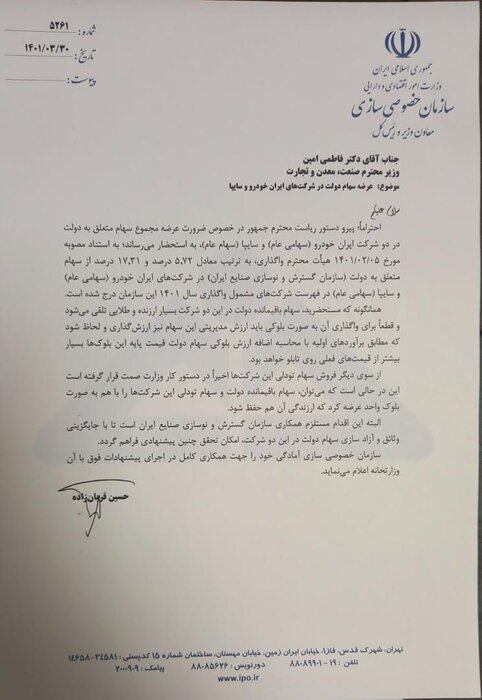 شماره : ۵۲۶۱
تاریخ : ۱۴۰۱/۰۳/۳۰
پیوست :
جمهوری اسلامی ایران
وزارت امور اقتصادی و دارایی
سازمان خصوصی سازی
معاون وزیر و رئیس کل
جناب آقای دکتر فاطمی امین
وزیر محترم صنعت، معدن و تجارت
موضوع: عرضه سهام دولت در شرکت‌های ایران خودرو و سایپا
سلام علیکم
احتراماً؛ پیرو دستور ریاست محترم جمهور در خصوص ضرورت عرضه مجموع سهام متعلق به دولت
در دو شرکت ایران خودرو (سهامی عام) و سایپا (سهام عام)، به استحضار می‌رساند؛ به استناد مصوبه
مورخ ۱۴۰۱/۰۲/۰۵ هیأت محترم واگذاری، به ترتیب معادل ۵,۷۲ درصد و ۱۷,۳۱ درصد از سهام
متعلق به دولت (سازمان گسترش و نوسازی صنایع ایران) در شرکت‌های ایران خودرو (سهامی عام)
و سایپا (سهامی عام) در فهرست شرکت‌های مشمول واگذاری سال ۱۴۰۱ این سازمان درج شده است.
همانگونه که مستحضرید، سهام باقیمانده دولت در این دو شرکت بسیار ارزنده و طلایی تلقی می‌شود
و قطعاً برای واگذاری آن به صورت بلوکی باید ارزش مدیریتی این سهام نیز ارزش‌گذاری و لحاظ شود
که مطابق برآوردهای اولیه با محاسبه اضافه ارزش بلوکی سهام دولت قیمت پایه این بلوک‌ها بسیار
بیشتر از قیمت‌های فعلی روی تابلو خواهد بود.
از سوی دیگر فروش سهام تودلی این شرکت‌ها اخیراً در دستور کار وزارت صمت قرار گرفته است
این در حالی است که می‌توان، سهام باقیمانده دولت و سهام تودلی این شرکت‌ها را با هم به صورت
بلوک واحد عرضه کرد که ارزندگی آن هم حفظ شود.
البته این اقدام مستلزم همکاری سازمان گسترش و نوسازی صنایع ایران است تا با جایگزینی
وثائق و آزاد سازی سهام دولت در این دو شرکت، امکان تحقق چنین پیشنهادی فراهم گردد.
سازمان خصوصی سازی آمادگی خود را جهت همکاری کامل در اجرای پیشنهادات فوق با آن
وزارتخانه اعلام می‌نماید.
حسین قربان‌زاده
تهران، شهرک قدس، فاز۱، خیابان ایران زمین، خیابان مهستان، ساختمان شماره ۱۵ کدپستی: ۳۴۵۸۱-۱۴۶۵۸
تلفن : ۱۹ - ۸۸۰۸۹۹۰۱ دورنویس : ۸۸۰۸۵۶۲۶ پیامک : ۲۰۰۰۹۰۹
www.ipo.ir